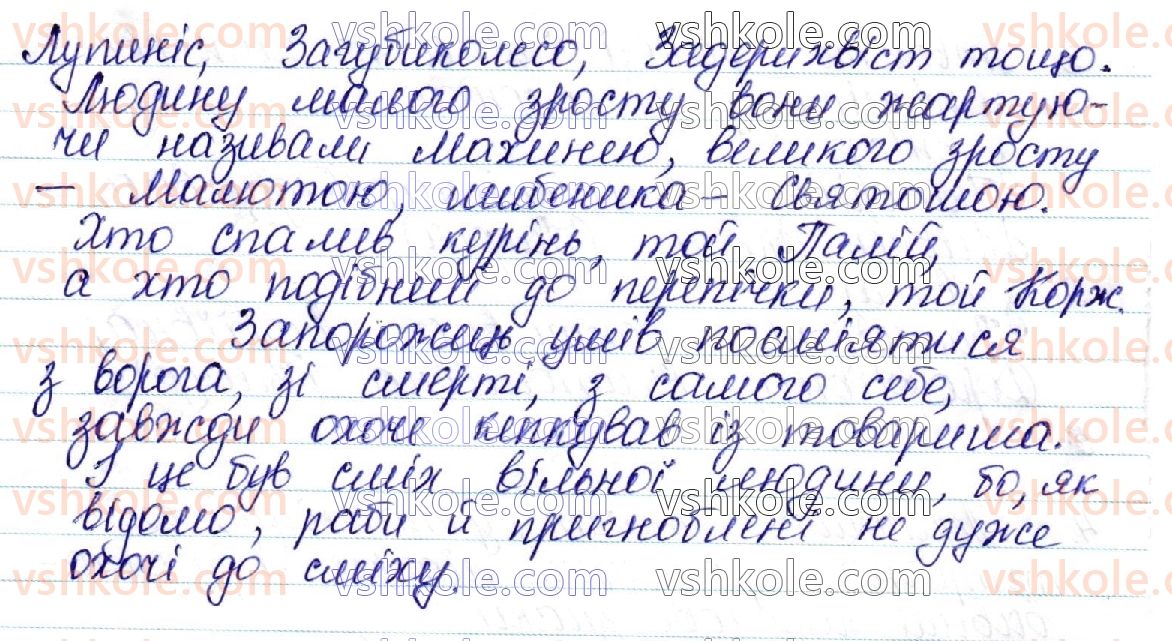 Лупиніс, Загубиколесо, Задерихвіст тощо.
Людину малого зросту вони жартую-
чи називали Махиною, великого зросту
— Малютою, шибеника – Святошою.
Хто спалив курінь, той Палій,
а хто подібний до перепічки, той Корж.
Запорожець умів посміятися
з ворога, зі смерті, з самого себе,
завжди охоче кепкував із товариша.
І це був сміх вільної людини, бо, як
відомо, раби й пригноблені не дуже
охочі до сміху.